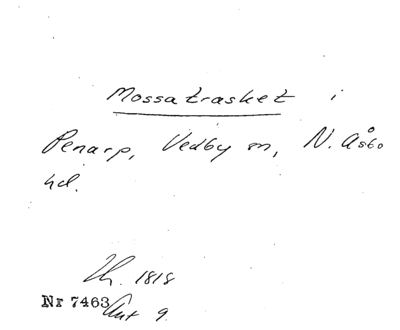 Mossatrasket i
Penarp, Vedby sn, N. Åsbo
hd.
Lh. 1818
Nr 7463 Akt 9